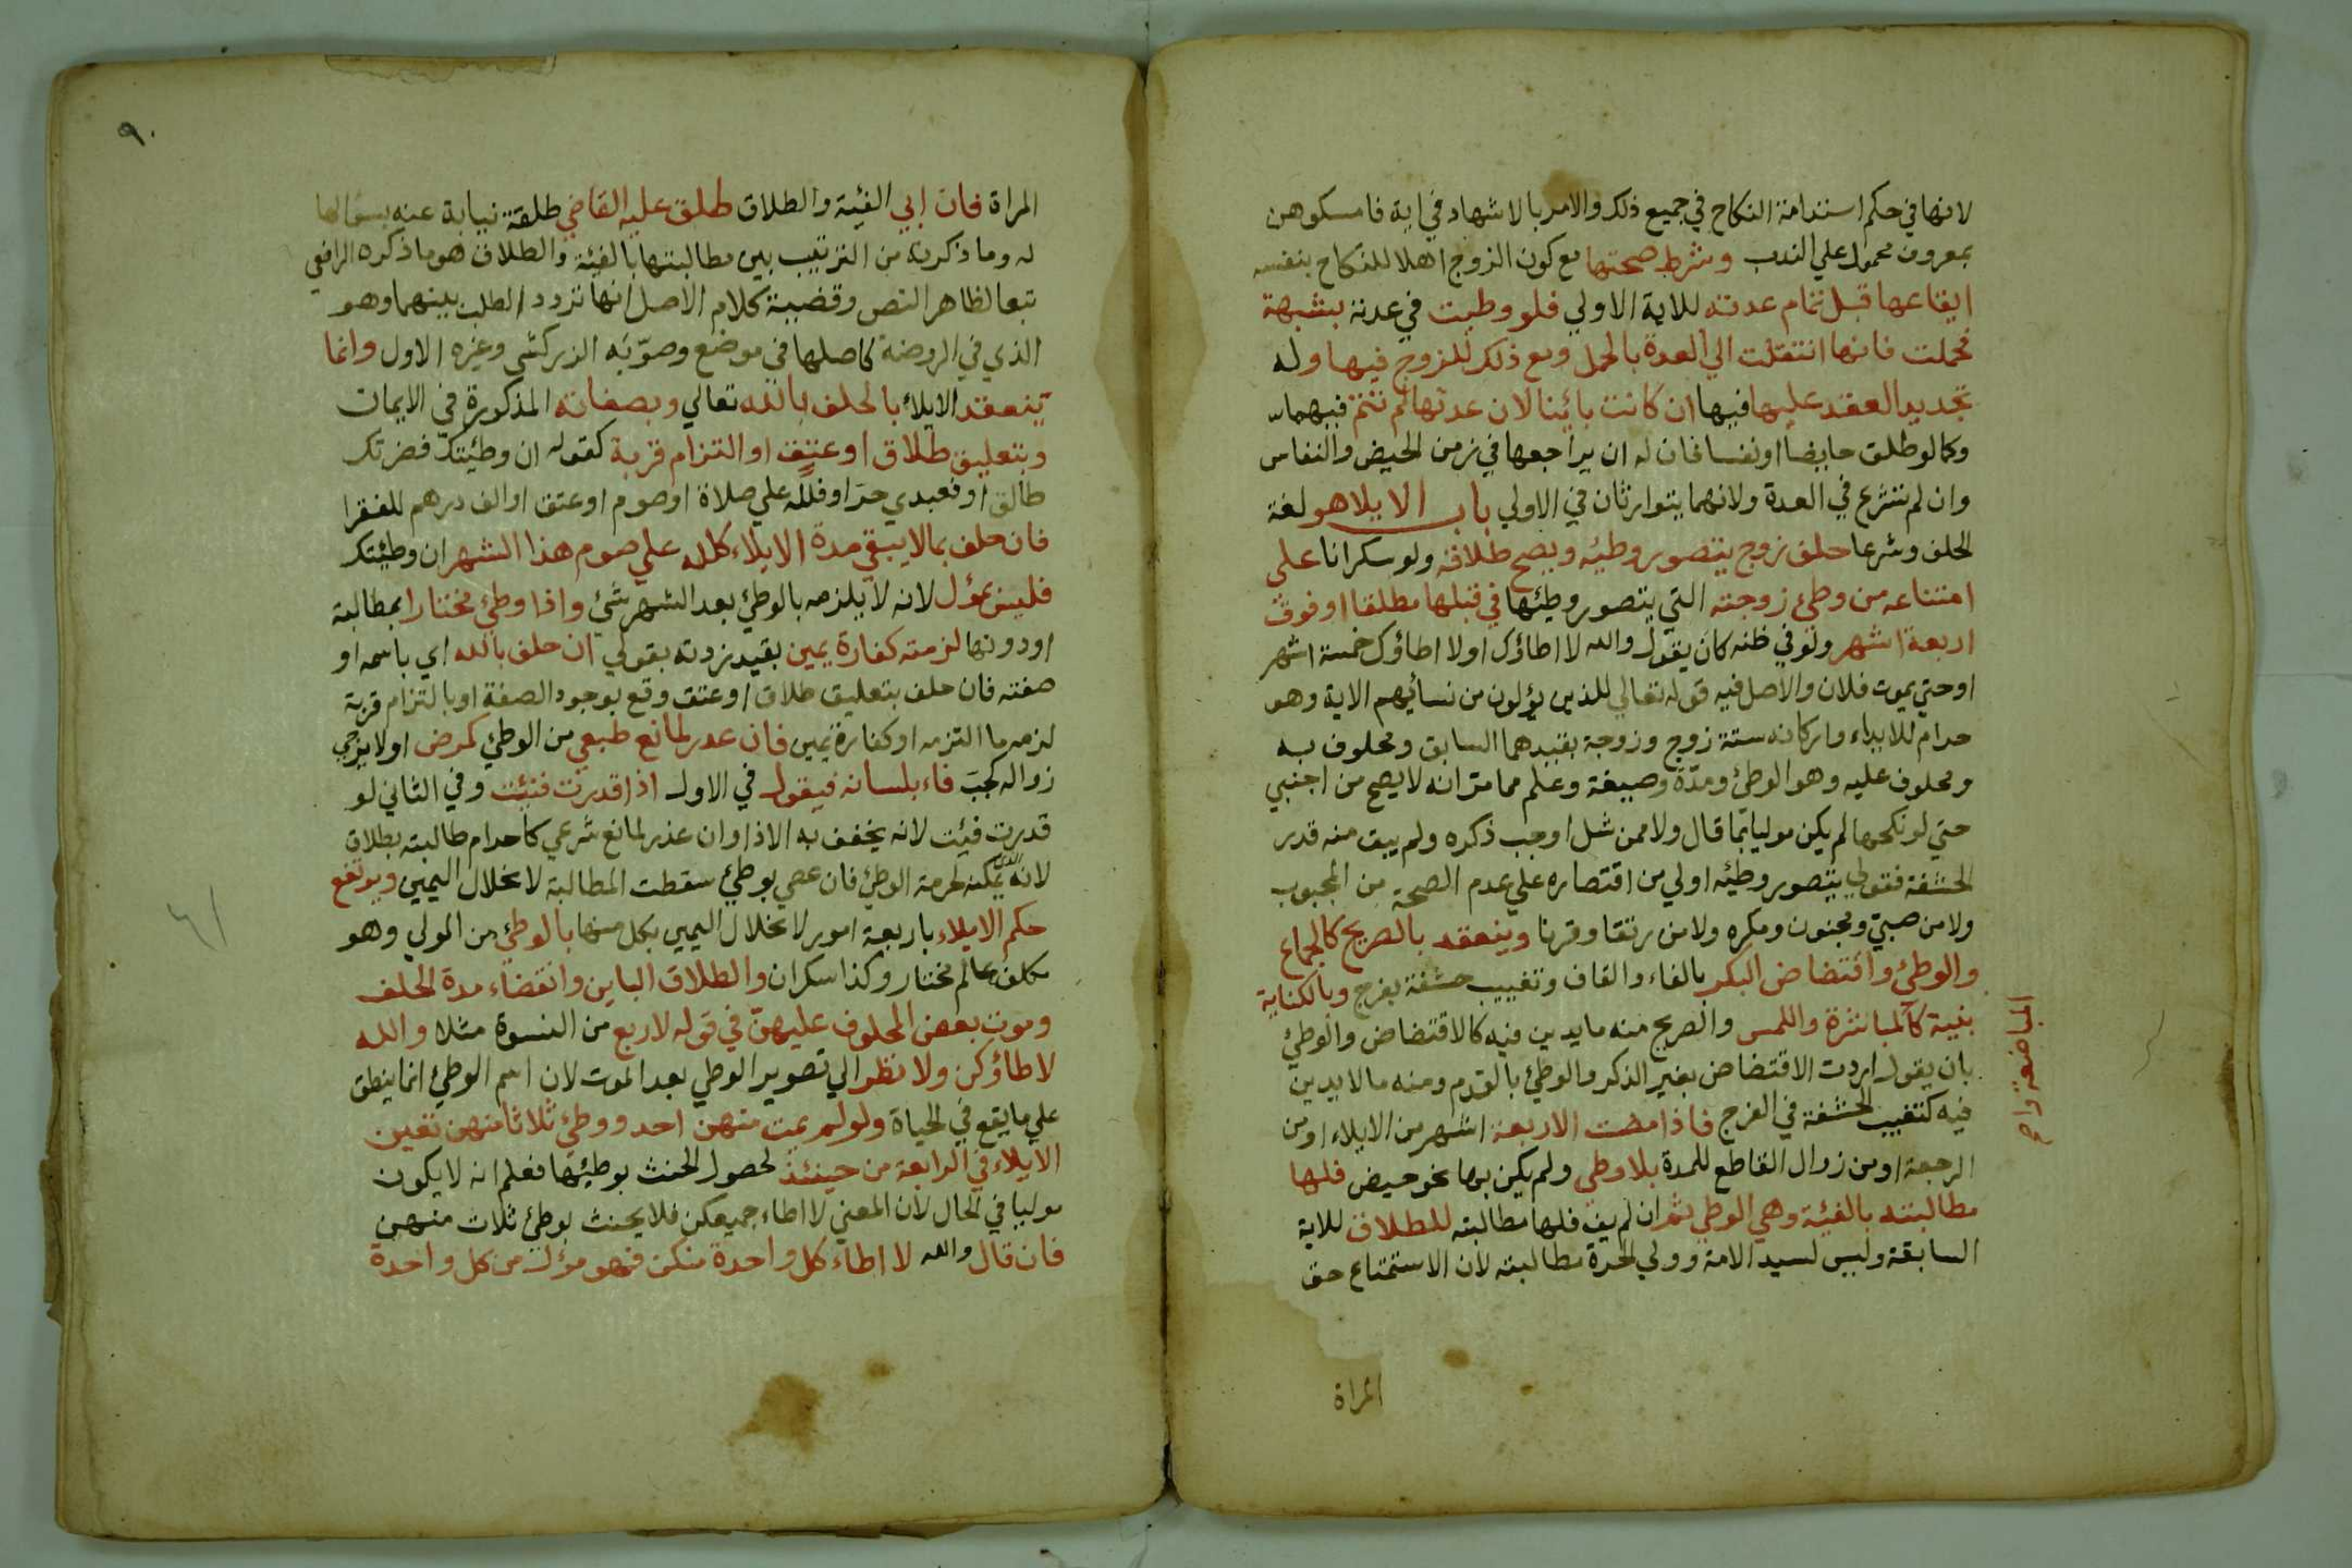 لانها في حكم استدامة النكاح في جميع ذلك والامر بالاشهاد في اية فامسكوهن
بمعروف محمول علي الندب وشرط صحتها مع كون الزوج اهلا للنكاح بنفسه
ايقاعها قبل تمام عدته للاية الاولي فلو وطيت في عدته بشبهة
فحملت فانها انتقلت الي العدة بالحمل ومع ذلك للزوج فيها وله
تجديد العقد عليها فيها ان كانت بائنا لان عدتها لم تتم فيهما
وكما لو طلق حايضا او نفسا فان له ان يراجعها في زمن الحيض والنفاس
وان لم تشرع في العدة ولانهما يتوارثان في الاولي باب الايلا هو لغة
الحلف وشرعا حلف زوج يتصور وطيئه ويصح طلاقه ولو سكرانا علي
امتناعه من وطئ زوجته التي يتصور وطيئها في قبلها مطلقا او فوق
اربعة اشهر ولو في ظنه كان يقول والله لا اطاؤك او لا اطاؤك خمسة اشهر
او حتي يموت فلان والاصل فيه قوله تعالي للذين يؤلون من نسائيهم الاية وهو
حرام للايذاء واركانه ستة زوج وزوجة بقيدهما السابق ومحلوف به
ومحلوف عليه وهو الوطئ ومدّة وصيغة وعلم مما مرّ انه لا يصح من اجنبي
حتي لو نكحها لم يكن موليا بما قال ولا ممن شل او جب ذكره ولم يبق منه قدر
الحشفة فقولي يتصور وطيئه اولي من اقتصاره علي عدم الصحة من المجبوب
ولا من صبيّ ومجنون ومكره ولا من رتقا وقرنا وينعقد بالصريح كالجماع
والوطئ واقتضاض البكر بالفاء والقاف وتغييب حشفة بفرج وبالكناية
بنية كالمباشرة واللمس والصريح منه ما يدين فيه كالاقتضاض والوطئ
بان يقول اردت الاقتضاض بغير الذكر والوطئ بالقدم ومنه ما لا يدين
فيه كتغييب الحشفة في الفرج فاذا مضت الاربعة اشهر من الايلاء او من
الرجعة او من زوال القاطع للمدة بلا وطي ولم يكن بها نحو حيض فلها
مطالبته بالفيئة وهي الوطي ثم ان لم يف فلها مطالبته للطلاق للاية
السابقة وليس لسيد الامة وولي الحرة مطالبته لان الاستمتاع حق
المراة
المباضعة واح
٩٠
المراة فان ابي الفيئة والطلاق طلق عليه القاضي طلقة نيابة عنه بسؤالها
له وما ذكرته من الترتيب بين مطالبتها بالفيئة والطلاق هو ما ذكره الرافعي
تبعا لظاهر النص وقضية كلام الاصل انها تردد الطلب بينهما وهو
الذي في الروضة كاصلها في موضع وصوّبه الزركشي وغيره الاول وانما
ينعقد الايلاء بالحلف بالله تعالي وبصفاته المذكورة في الايمان
وبتعليق طلاق او عتق او التزام قربة كقوله ان وطيئتك فضرتك
طالق او فعبدي حرّ او فلله علي صلاة او صوم او عتق او الف درهم للفقرا
فان حلف بما لا يبقي مدة الايلاء كلله علي صوم هذا الشهر ان وطيئتك
فليس بمؤل لانه لا يلزمه بالوطئ بعد الشهر شئ واذا وطئ مختارا بمطالبة
او دونها لزمته كفارة يمين بقيد زدته بقولي ان حلف بالله اي باسمه او
صفته فان حلف بتعليق طلاق او عتق وقع بوجود الصفة او بالتزام قربة
لزمه ما التزمه او كفارة يمين فان عدر لمانع طبعي من الوطئ كمرض او لا يرجي
زواله كجبّ فاء بلسانه فيقول في الاول اذا قدرت فئت وفي الثاني لو
قدرت فيئت لانه يخفف به الاذا وان عذر لمانع شرعي كاحرام طالبته بطلاق
لانه الذي يمكنه لحرمة الوطئ فان عصي بوطئ سقطت المطالبة لانحلال اليمين ويرتفع
حكم الايلاء باربعة امور لانحلال اليمين بكل منها بالوطئ من المولي وهو
مكلف عالم مختار وكذا سكران والطلاق الباين وانقضاء مدة الحلف
وموت بعض المحلوف عليهنّ في قوله لاربع من النسوة مثلا والله
لا طاؤكن ولا نظر الي تصوير الوطي بعد الموت لان اسم الوطئ انما ينطق
علي ما يقع في الحياة ولو لم يمت منهن احد ووطئ ثلاثا منهن تعين
الايلاء في الرابعة من حينئذ لحصول الحنث بوطيئها فعلم انه لا يكون
موليا في الحال لان المعني لا اطاء جميعكن فلا يحنث بوطئ ثلاث منهن
فان قال والله لا اطاء كل واحدة منكن فهو مؤل من كل واحدة